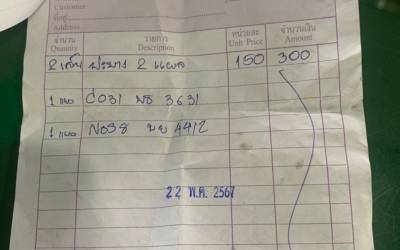 Customer
ที่อยู่
Address
จำนวน รายการ หน่วยละ จำนวนเงิน
Quantity Description Unit Price Amount
2 เส้น ปะยาง 2 แผล 150 300
1 แผล C031 พร 3631
1 แผล N038 4412
22 พ.ค. 2567